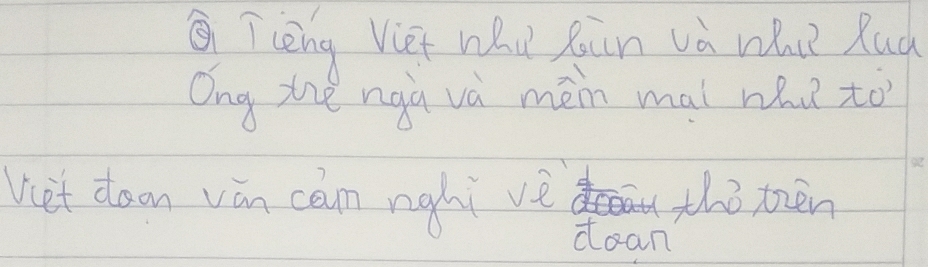 Ôi Tiếng Việt như bùn và như lụa
Óng tre ngà và mềm mại như tơ
Viết đoạn văn cảm nghĩ về thơ trên
đoạn